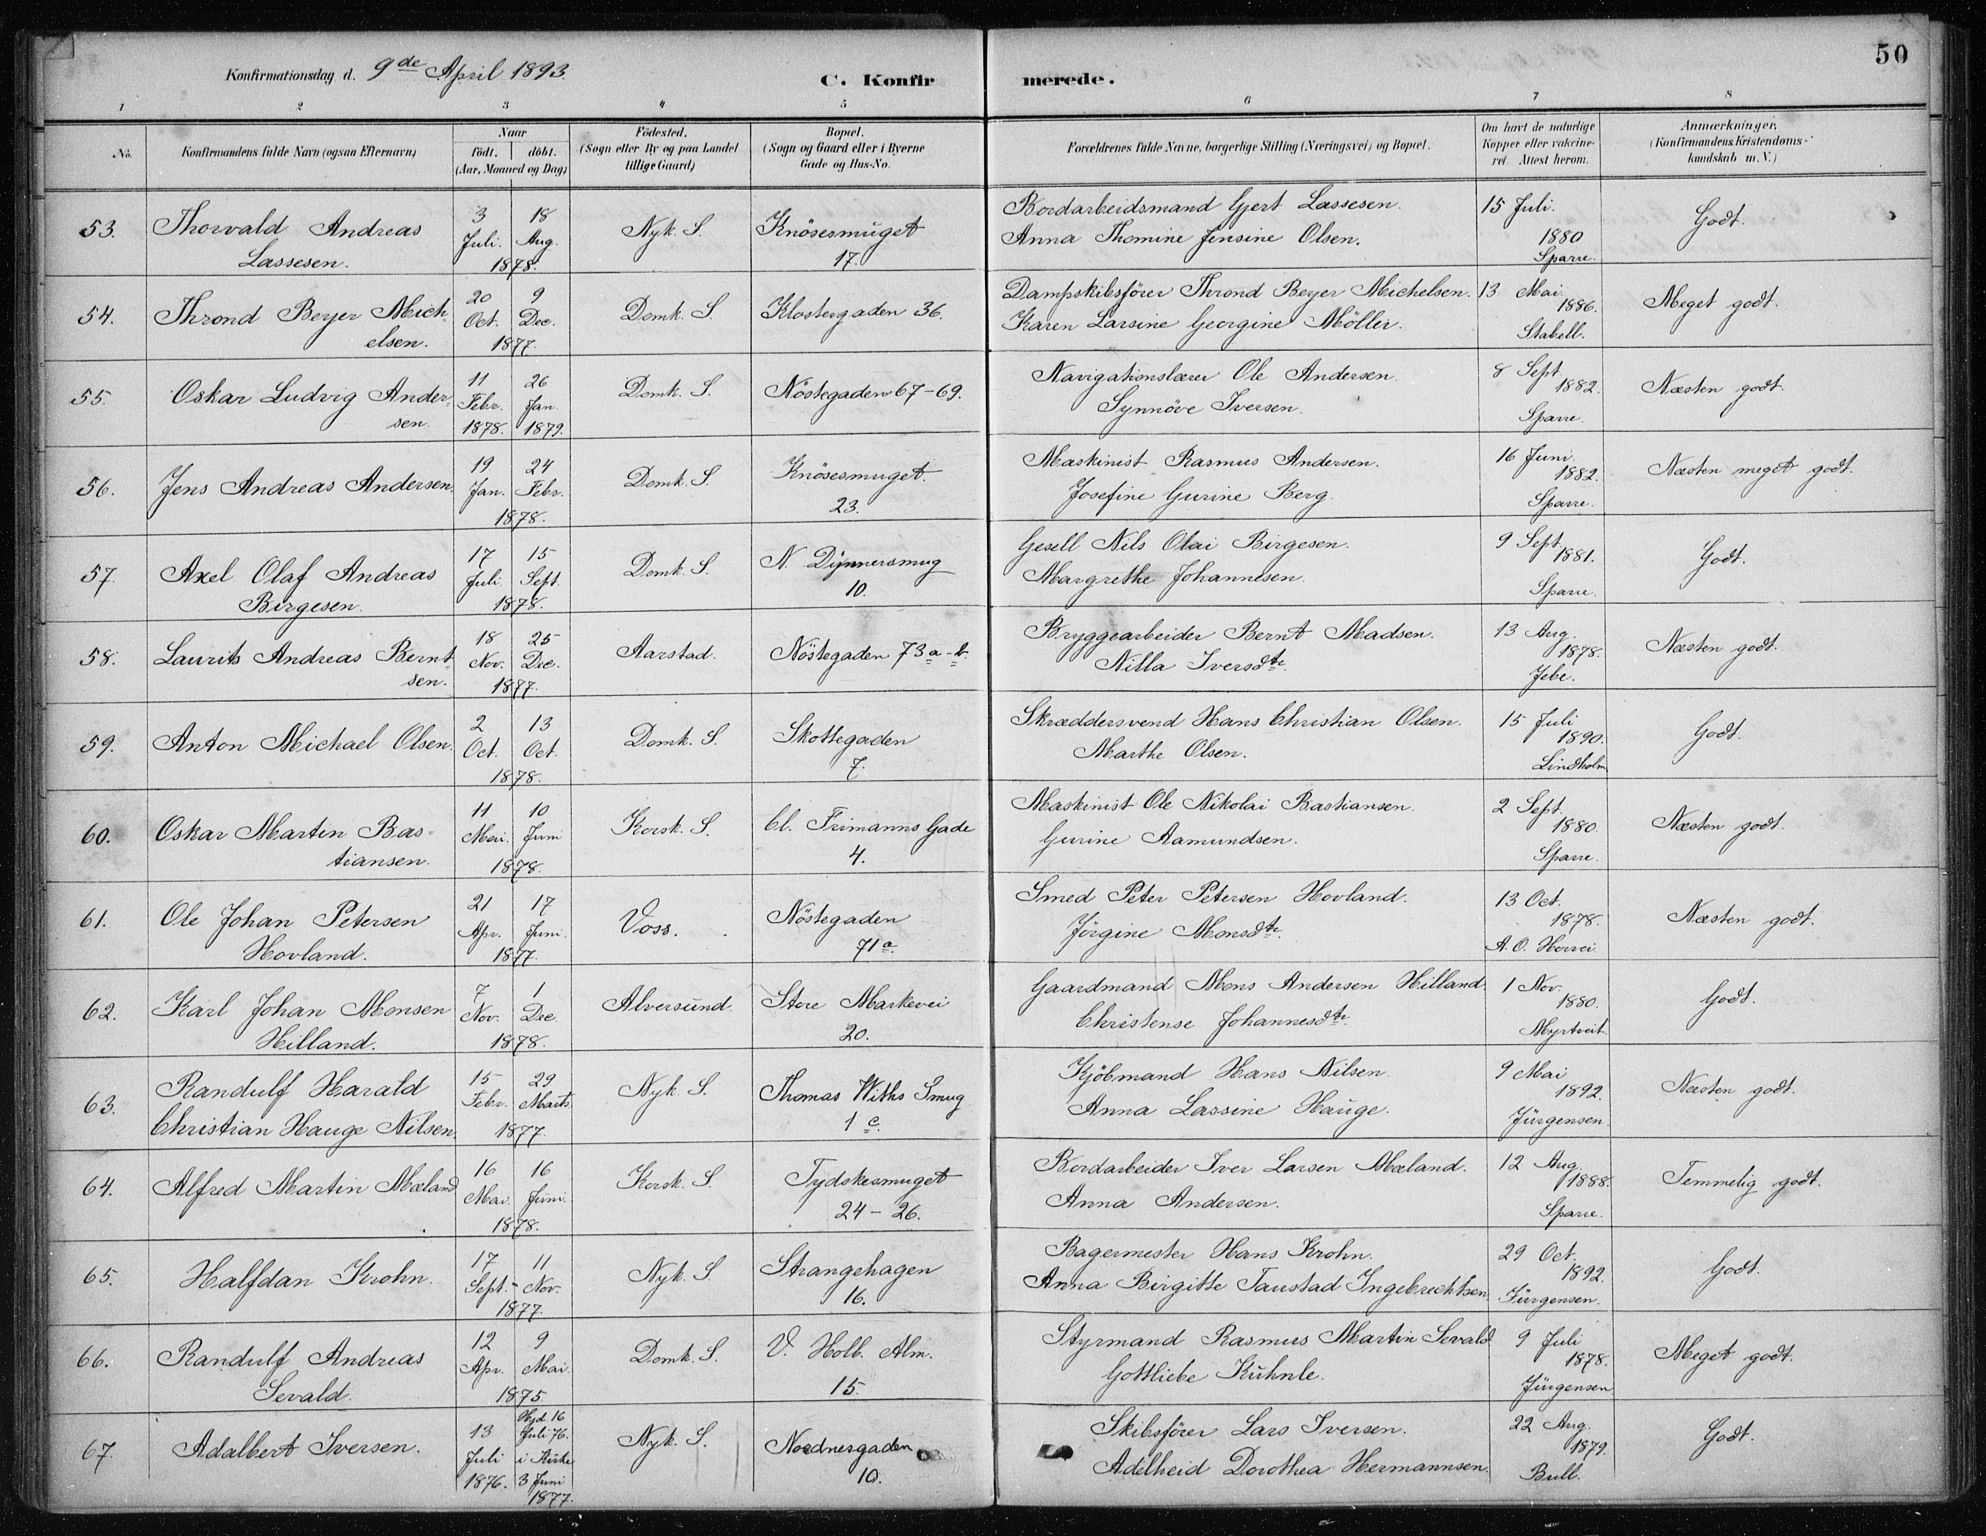 50
Konfirmationsdag d. 9de April 1893.
C. Konfirmerede.
1 2 3 4 5 6 7 8
No.
Konfirmandens fulde Navn (ogsaa Efternavn)
Naar
födt. döbt.
(Aar, Maaned og Dag)
Födested.
(Sogn eller By og paa Landet
tillige Gaard)
Bopæl.
(Sogn og Gaard eller i Byerne
Gade og Hus-No.
Forældrenes fulde Navne, borgerlige Stilling (Næringsvei) og Bopæl.
Om havt de naturlige
Kopper eller vakcineret. Attest herom.
Anmærkninger.
(Konfirmandens Kristendomskundskab m. V.)
53. Thorvald Andreas Lassesen. 3 Juli. 18 Aug. 1878. Nyk. S. Knösesmuget 17. Bordarbeidsmand Gjert Lassesen. Anna Thomine Jensine Olsen. 15 Juli. 1880 Sparre. Godt.
54. Thrond Beyer Michelsen. 20 Oct. 9 Dec. 1877. Domk. S. Klostergaden 36. Dampskibsfører Thrond Beyer Michelsen. Karen Larsine Georgine Möller. 13 Mai 1886. Stabell. Meget godt.
55. Oskar Ludvig Andersen. 11 Febr. 1878. 26 Jan. 1879. Domk. S. Nöstegaden 67-69. Navigationslærer Ole Andersen. Synnöve Iversen. 8 Sept 1882. Sparre. Næsten godt.
56. Jens Andreas Andersen. 19 Jan. 24 Febr. 1878. Domk. S. Knösesmuget. 23. Maskinist Rasmus Andersen. Josefine Gurine Berg. 16 Juni 1882. Sparre. Næsten meget godt.
57. Axel Olaf Andreas Birgesen. 17 Juli. 15 Sept. 1878. Domk. S. N. Dynnersmug 10. Gesell Nils Olai Birgesen. Margrethe Johannesen. 9 Sept 1881. Sparre. Godt.
58. Laurits Andreas Berntsen. 18 Nov. 25 Dec. 1877. Aarstad. Nöstegaden 73 a-b. Bryggearbeider Bernt Madsen. Nilla Iversdtr. 13 Aug. 1878. Jebe. Næsten godt.
59. Anton Michael Olsen. 2 Oct. 13 Oct. 1878. Domk. S. Skottegaden 7. Skræddersvend Hans Christian Olsen. Marthe Olsen. 15 Juli 1890. Lindholm Godt.
60. Oskar Martin Bastiansen. 11 Mai. 10 Juni 1878. Korsk. S. Cl. Frimanns Gade 4. Maskinist Ole Nikolai Bastiansen. Gurine Aamundsen. 2 Sept. 1880. Sparre. Næsten godt.
61. Ole Johan Petersen Hovland. 21 Apr. 17 Juni. 1877. Voss. Nöstegaden 71 a. Smed Peter Petersen Hovland. Jörgine Monsdtr. 13 Oct. 1878. A. O. Horvei. Næsten godt.
62. Karl Johan Monsen Hilland. 7 Nov. 1 Dec 1878. Alversund. Store Markevei 20. Gaardmand Mons Andersen Hilland. Christense Johannesdtr. 1 Nov. 1880. Myrtveit. Godt.
63. Randulf Harald Christian Hauge Nilsen. 15 Febr. 29 Marts 1877. Nyk. S. Thomas Withs Smug 1 c. Kjöbmand Hans Nilsen. Anna Lassine Hauge. 9 Mai 1892. Jürgensen. Næsten godt.
64. Alfred Martin Mæland 16 Mai. 16 Juni. 1878. Korsk. S. Tydskesmuget 24-26. Bordarbeider Iver Larsen Mæland. Anna Andersen. 12 Aug 1888. Sparre. Temmelig godt.
65. Halfdan Krohn. 17 Sept. 11 Nov. 1877. Nyk. S. Strangehagen 16. Bagermester Hans Krohn. Anna Birgitte Taustad Ingebrechtsen. 29 Oct. 1892. Jürgensen. Godt.
66. Randulf Andreas Sevald. 12 Apr. 9 Mai. 1875 Domk. S. V. Holb. Alm. 15. Styrmand Rasmus Martin Sevald. Gottliebe Kühnle. 9 Juli 1878. Jürgensen Meget godt.
67. Adalbert Iversen. 13 Juli 1876. Hjd. 16 Juli 76. i Kirke 3 Juni 1877. Nyk. S. Nordnesgaden 10. Skibsförer Lars Iversen. Adelheid Dorothea Hermannsen. 22 Aug. 1879. Bull. Godt.